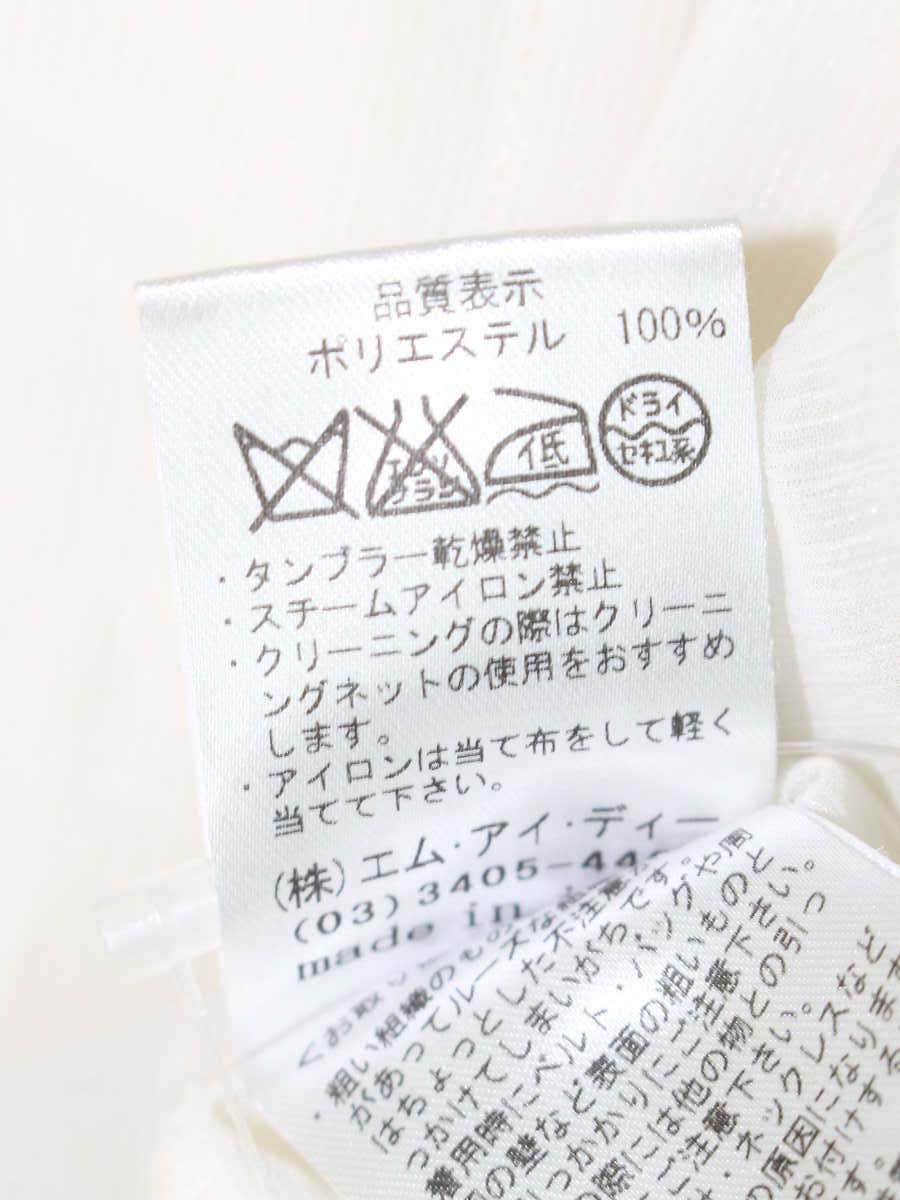 品質表示
ポリエステル 100%
エンソ
サラシ
低
ドライ
セキユ系
・タンブラー乾燥禁止
・スチームアイロン禁止
・クリーニングの際はクリーニ
ングネットの使用をおすすめ
します。
・アイロンは当て布をして軽く
当てて下さい。
(株)エム・アイ・ディー
(03)3405-44
made in
・粗い組織のものな
があってルーズな
はちょっとした不注意
っかけてしまいがちです。や周
着用時にベルト・バッグ
の壁など表面の粗いものと
っかかりにご注意下さい。
の際には他の物との引っ
ご注意下さい。
・ネックレスなど
の原因になりま
お付けする